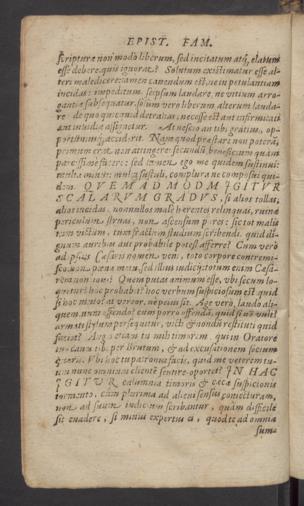 EPIST. FAM.
scripturæ non modò liberum, sed incitatum atq, elatum
esse debere quis ignorat? Solutum existimatur esse al-
teri maledicere: tamen cauendum est, ne in petulantiam
incidas: impeditum, seipsum laudare, ne vitium arro-
gantiæ subsequatur. solùm verò liberum alterum lauda-
re de quo quicquid detrahas, necesse est aut infirmitati
aut inuidiæ assignetur. At nescio an tibi gratius, op-
portunius accident. Nam quod præstare non poteram,
primum erat non attingere: secundũ beneficium quàm
parcissimè facere: sed tamen ego me quidem sustinui:
multa minui, multa sustuli, complura ne composui qui-
dem. QVEMADMODVM IGITVR
SCALARVM GRADVS, si alios tollas,
alios incidas, nonnullos male hærentes relinquas, ruinæ
periculum struas, non ascensum pares: sic tot malis
tum victum, tum fractum studium scribendi, quid di-
gnum auribus aut probabile potest afferre? Cum verò
ad ipsius Cæsaris nomen veni, toto corpore contremi-
sco, non pœnæ metu, sed illius iudicij. totum enim Cæsa-
rem non noui. Quem putas animum esse, vbi secum lo-
quitur? hoc probabit: hoc verbum suspiciosum est. quid
si hoc muto? at vereor, ne peius sit. Age verò, laudo ali-
quem. num offendo? cum porrò offendã, quid si nõ vult?
armati stylum persequitur, victi & nondũ restituti quid
faciet? Auges etiam tu mihi timorem, qui in Oratore
tuo caues tibi per Brutum, & ad excusationem socium
quæris. Vbi hoc tu patronus facis, quid me veterem tu-
um nunc omnium clientẽ sentire oportet? IN HAC
IGITVR calumnia timoris & cæcæ suspicionis
tormento, cum plurima ad alieni sensus coniecturam,
non ad suum iudicium scribantur, quàm difficile
sit euadere, si minus expertus es, quòd te ad omnia
sum-